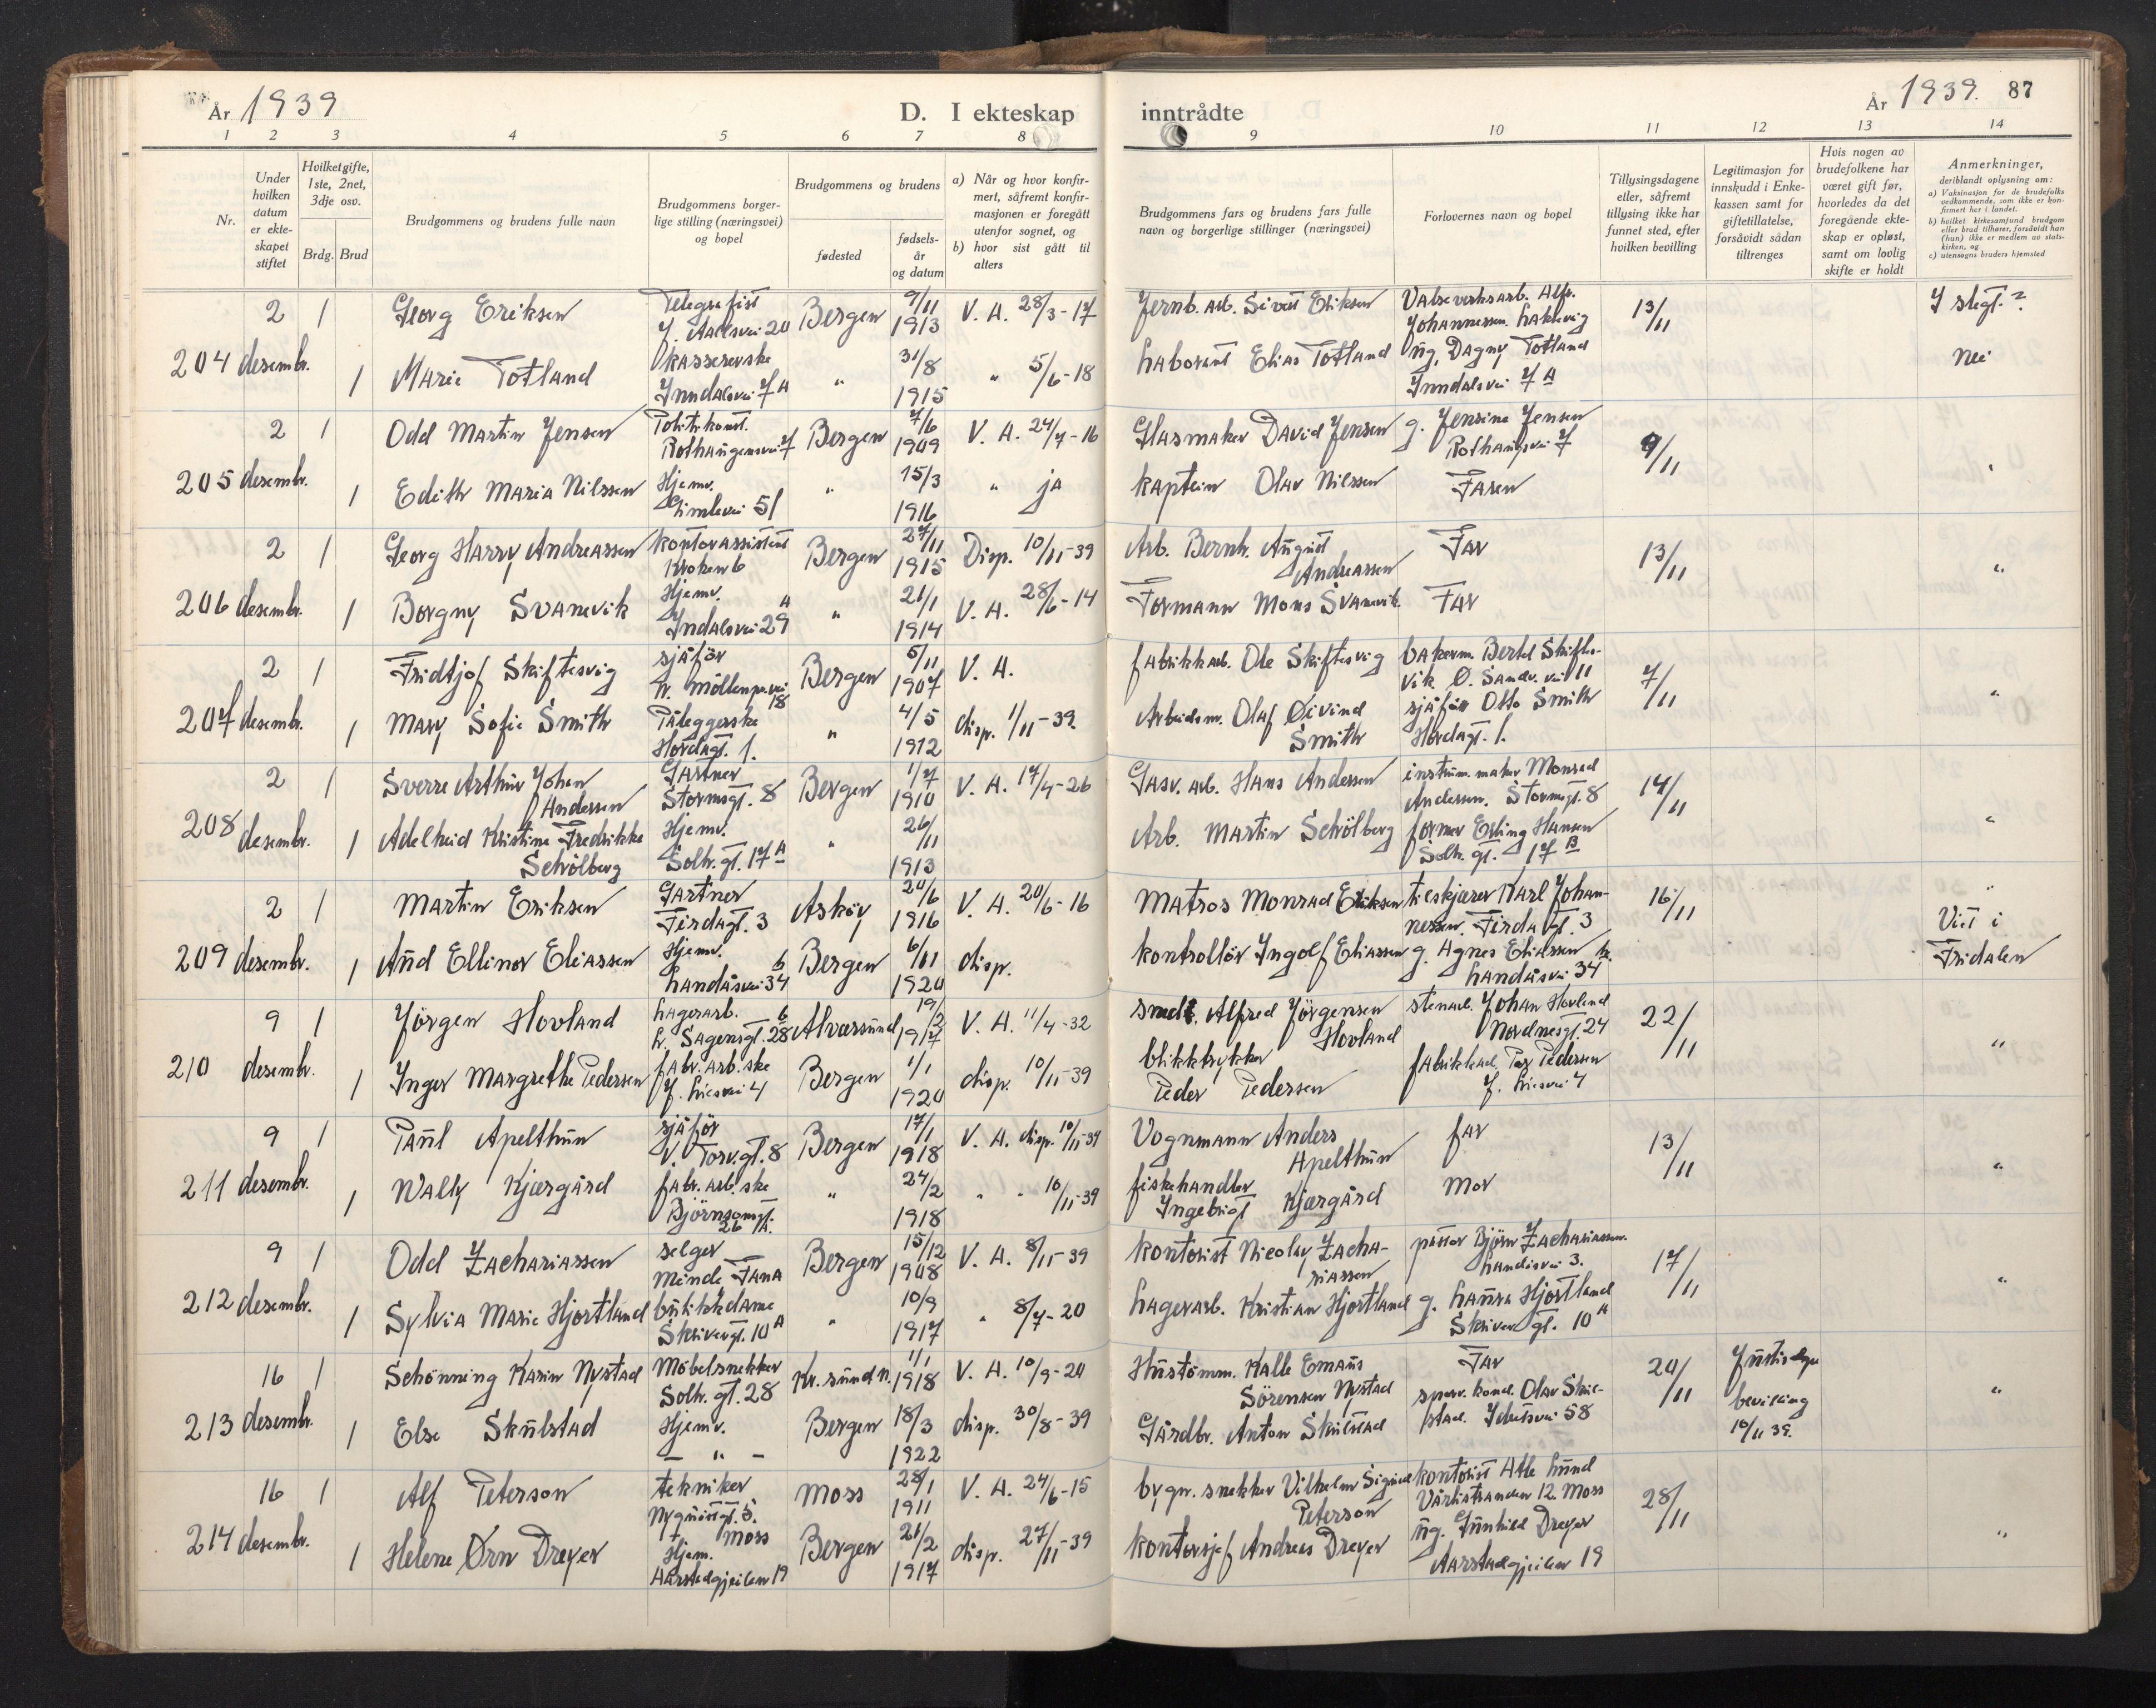 År 1939
D. I ekteskap inntrådte
År 1939. 87
1 2 3 4 5 6 7 8 9 10 11 12 13 14
Nr.
Under hvilken datum er ekteskapet stiftet
Hvilket gifte, 1ste, 2net, 3dje osv.
Brdg. Brud
Brudgommens og brudens fulle navn
Brudgommens borgerlige stilling (næringsvei) og bopel
Brudgommens og brudens
fødested
fødselsår og datum
a) Når og hvor konfirmert, såfremt konfirmasjonen er foregått utenfor sognet, og
b) hvor sist gått til alters
Brudgommens fars og brudens fars fulle navn og borgerlige stillinger (næringsvei)
Forlovernes navn og bopel
Tillysingsdagene eller, såfremt tillysing ikke har funnet sted, efter hvilken bevilling
Legitimasjon for innskudd i Enkekassen samt for giftetillatelse, forsåvidt sådan tiltrenges
Hvis nogen av brudefolkene har været gift før, hvorledes da det foregående ekteskap er opløst, samt om lovlig skifte er holdt
Anmerkninger, deriblandt oplysning om:
a) Vaksinasjon for de brudefolks vedkommende, som ikke er konfirmert her i landet.
b) hvilket kirkesamfund brudgom eller brud tilhører, forsåvidt han (hun) ikke er medlem av statskirken, og
c) utensogns bruders hjemsted
204 2 desembr. 1 Georg Eriksen Telegrafist J. Aallsvei 20 Bergen 9/11 1913 V. A. 28/3-17 Jernb. arb. Sivert Eriksen Valseverksarb. Alfr. Johannessen. Laksevig 13/11 I slegt.?
1 Marie Totland kassererske Inndalsvei 7 A " 31/8 1915 " 5/6-18 Laborant Elias Totland ug. Dagny Totland Inndalsvei 7 A Nei
205 2 desembr. 1 Odd Martin Jensen Politikonst. Rothaugensvei 7 Bergen 7/6 1909 V. A. 24/7-16 Glasmaker David Jensen g. Jensine Jensen Rothaugsvei 7 9/11
1 Edith Maria Nilssen Hjemv. Gimlevei 51 " 15/3 1916 " ja kaptein Olav Nilssen Faren "
206 2 desembr. 1 Georg Harry Andreassen kontorassistent Kroken 6 Bergen 27/11 1915 Disp. 10/11-39 Arb. Bernh. August Andreassen Far 13/11 "
1 Borgny Svanevik Hjemv. Indalsvei 29 A " 21/1 1914 V. A. 28/6-14 Formann Mons Svanevik. Far
207 2 desembr. 1 Fridtjof Skiftesvig sjåför N. Möllenpr. vei 18 Bergen 5/11 1907 V. A. fabrikkarb. Ole Skiftesvig bakerm. Bertel Skiftesvik. Ø. Sandv. vei 11 7/11
1 Mary Sofie Smith Påleggerske Hordagt. 1. " 4/5 1912 disp. 1/11-39 Arbeidsm. Olaf Øivind Smith sjåför Otto Smith Hordagt. 1. "
208 2 desembr. 1 Sverre Arthur Johan Andersen Gartner Stormsgt. 8 Bergen 1/7 1910 V. A. 17/4-26 Gasv. arb. Hans Andersen instrum. maker Monrad Andersen. Stormsgt. 8 14/11
1 Adelheid Kristine Fredrikke Schölberg Hjemv. Solh. gt. 17 A " 26/11 1913 Arb. Martin Schölberg former Erling Hansen Solh. gt. 17 B "
209 2 desembr. 1 Martin Eriksen Gartner Firdagt. 3 Asköy 20/6 1916 V. A. 20/6-16 Matros Monrad Eriksen tilskjærer Karl Johannessen. Firda gt. 3 16/11 "
1 Aud Ellinor Eliassen Hjemv. Landåsvei 34 b Bergen 6/11 1920 disp. kontrollör Ingolf Eliassen g. Agnes Eliassen Landåsvei 34 b. Viet i Fridalen
210 9 desembr. 1 Jörgen Hovland Lagerarb. L. Sagensgt. 28 b Alversund 19/2 1917 V. A. 11/4-32 smed. Alfred Jörgensen Hovland stenarb. Johan Hovland Nordnesgt. 24 22/11
1 Inger Margrethe Pedersen fabr. arb.ske J. Liesvei 4 Bergen 1/1 1920 disp. 10/11-39 blikktrykker Peder Pedersen fabrikkarb. Per Pedersen J. Liesvei 4 "
211 9 desembr. 1 Paul Apelthun sjåför V. Torv.gt. 8 Bergen 17/1 1918 V. A. disp. 10/11-39 Vognmann Anders Apelthun far 13/11
1 Wally Kjærgård fabr. arb.ske Björnsonsgt. 26 A. " 24/2 1918 " " 10/11-39 fiskehandler Ingebrigt Kjærgård Mor "
212 9 desembr. 1 Odd Zachariassen selger Minde Fana Bergen 15/12 1908 V. A. 8/11-39 kontorist Nicolay Zachariassen pastor Björn Zachariassen. Landåsvei 3. 17/11
1 Sylvia Marie Hjortland butikkdame Skrivergt. 10 A " 10/9 1917 " 8/7-20 Lagerarb. Kristian Hjortland g. Laura Hjortland Skriver gt. 10 A "
213 16 desembr. 1 Schönning Karin Nystad Möbelsnekker Solh. gt. 28 Kr. sund N. 1/1 1918 V. A. 10/9-20 Hustömm. Kalle Emaus Sörensen Nystad Far 20/11 Justisdep. bevilling 10/11 39.
1 Else Skulstad Hjemv. - " - Bergen 18/3 1922 disp. 30/8-39 Gårdbr. Anton Skulstad sporv. kond. Olav Skulstad. Ibsensvei 58 "
214 16 desembr. 1 Alf Peterson tekniker Nyquistgt. 5. Moss Moss 28/1 1911 V. A. 24/6-15 bygn. snekker Vilhelm Sigurd Peterson kontorist Atle Lund Vårlistranden 12. Moss 28/11
1 Helene Ørn Dreyer Hjem. Aarstadgjeilen 19 Bergen 21/2 1917 disp. 27/11-39 kontorsjef Andreas Dreyer ug. Gunhild Dreyer Aarstadgjeilen 19 "